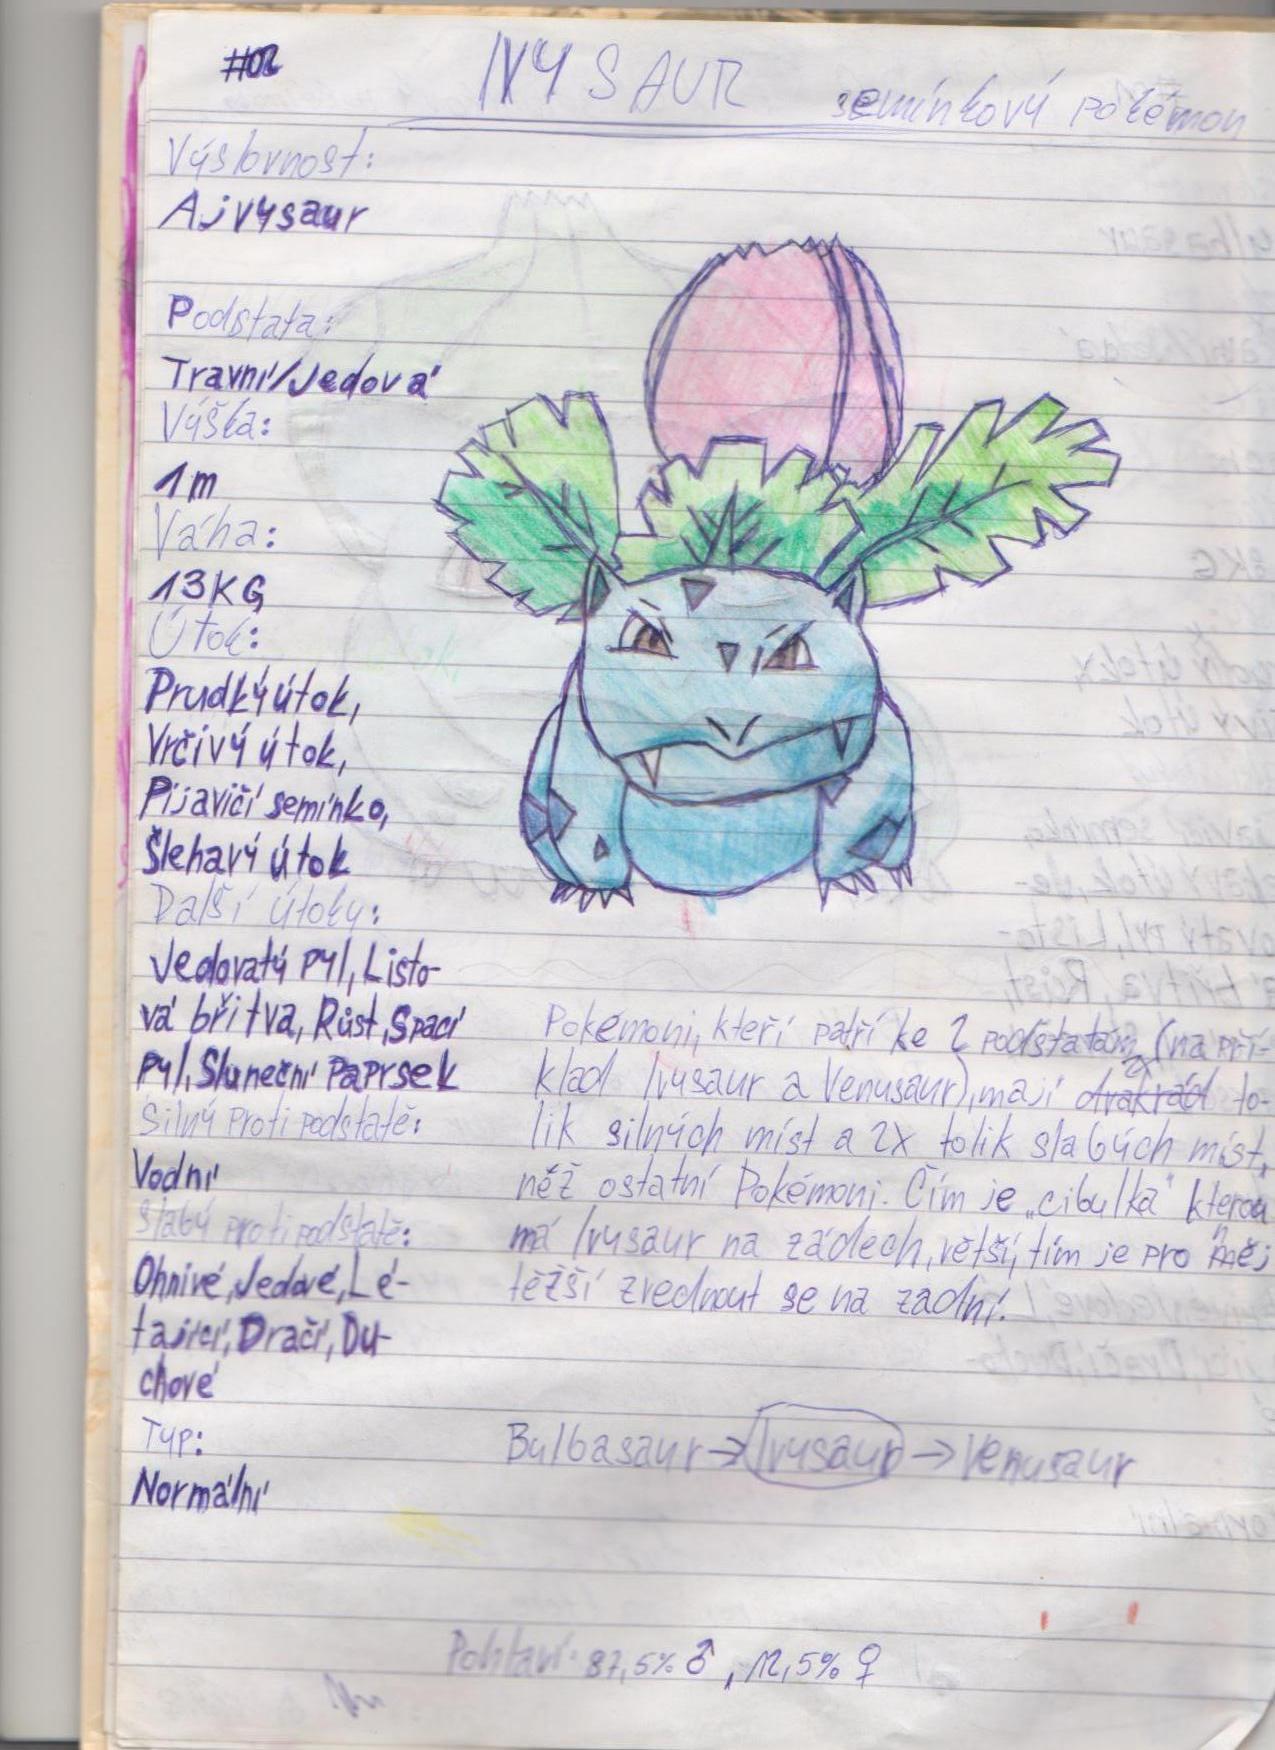 #02
IVYSAUR semínkový pokémon
Výslovnost:
Ajvysaur
Podstata:
Travní/Jedová
Výška:
1m
Váha:
13KG
Útok:
Prudký útok,
Vrčivý útok,
Pijavičí semínko,
Šlehavý útok
Další útoky:
Jedovatý pyl, Listo-
vá břitva, Růst, Spací
pyl, Sluneční Paprsek
Silný proti podstatě:
Vodní
Slabý proti podstatě:
Ohnivé, Jedové, Lé-
tající, Dračí, Du-
chové
Typ:
Normální
Pokémoni, kteří patří ke 2 podstatám (na pří-
klad Ivysaur a Venusaur), mají 2x to-
lik silných míst a 2x tolik slabých míst,
něž ostatní Pokémoni. Čím je „cibulka" kterou
má Ivysaur na zádech, větší, tím je pro něj
těžší zvednout se na zadní.
Bulbasaur → Ivysaur → Venusaur
Pohlaví: 87,5% ♂, 12,5% ♀